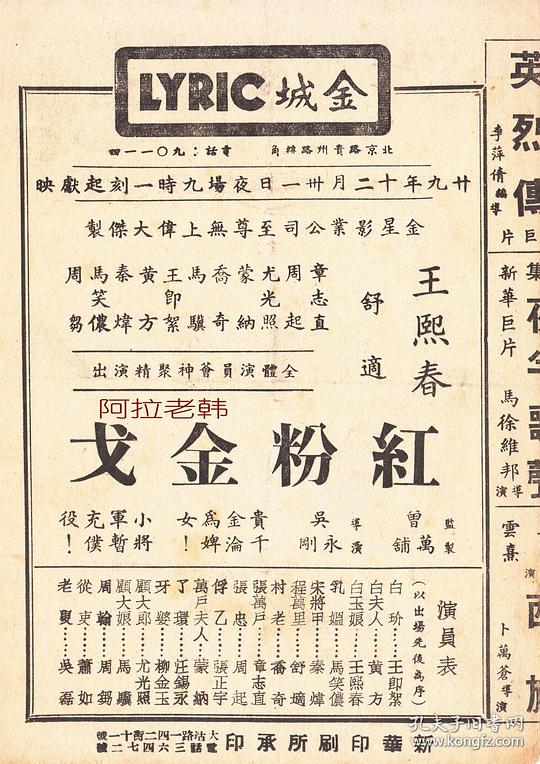 金城 LYRIC
北京路貴州路轉角 電話：九〇一一四
廿九年十二月卅一日夜場九時一刻起獻映
金星影業公司至尊無上偉大傑製
王熙春
舒適
章志直
周起
尤光照
蒙納
喬奇
馬驥
王卽絮
黃方
秦煒
馬笑儂
周芻
全體演員會神聚精演出
阿拉老韩
紅粉金戈
監製
曾萬舖
導演
吳永剛
貴千
金淪
為婢
女！
小將
軍暫
充僕
役！
演員表
（以出場先後為序）
白玠……王卽絮
白夫人……黃方
白玉娘……王熙春
乳媼……馬笑儂
宋將甲……秦煒
程萬里……舒適
村老……喬奇
張萬戶……章志直
張忠……周起
俘乙……張正宇
萬戶夫人……蒙納
丫環……汪錫永
牙婆……柳金玉
顧大郎……尤光照
顧大娘……馬驥
周翰……周芻
從吏……蕭如
老夏……吳磊
新華印刷所承印
大沽路一四二街十一號
電話三六四七二號
英烈傳
李萍倩編導
巨片
集
新華巨片
夜半歌聲
馬徐維邦導演
演
卜萬蒼導演
孔夫子旧书网
www.kongfz.com